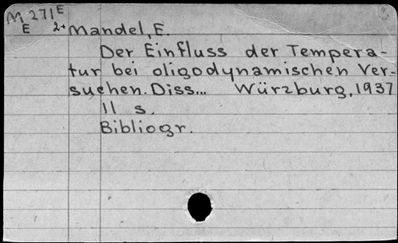 M 271E
E 2+ Mandel, E.
Der Einfluss der Tempera-
tur bei oligodynamischen Ver-
suchen. Diss... Würzburg, 1937
11 s.
Bibliogr.